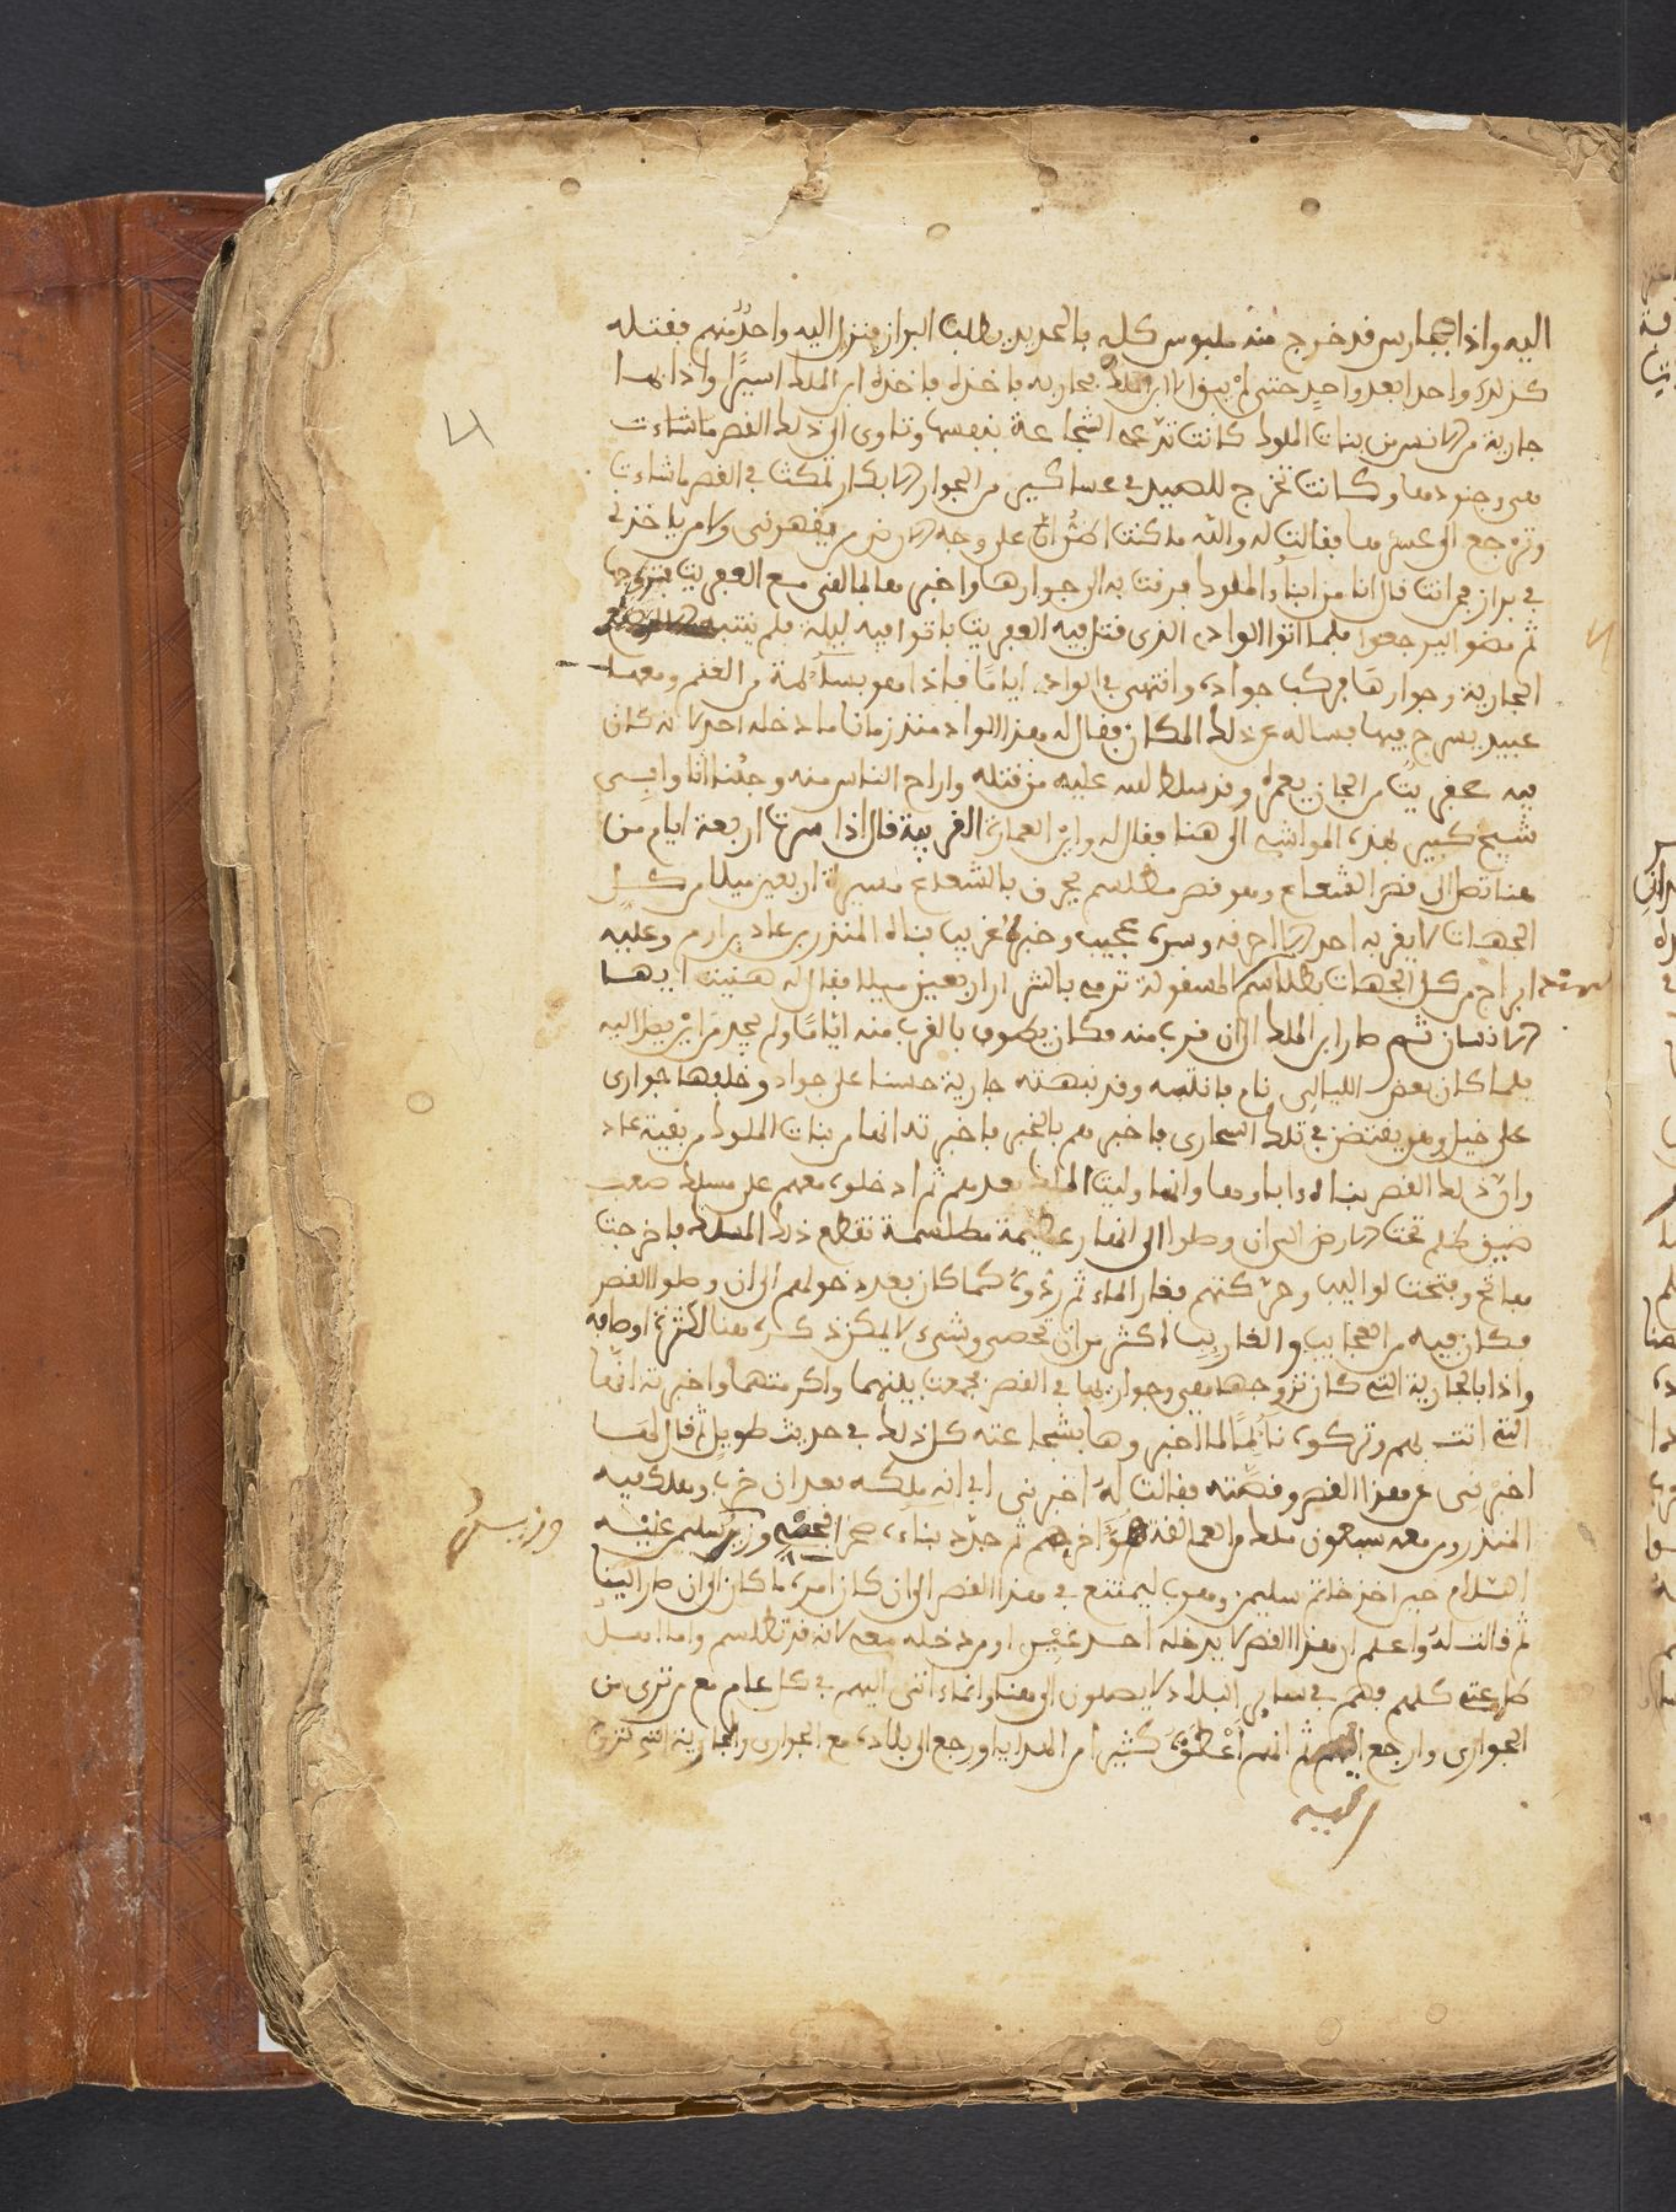 اليه واذا بفارس قد خرج منه ملبوس كله بالحديد يطلب البراز فنزل اليه واحد منهم فقتله
كذلك واحدا بعد واحد حتى لم يبق الا ابن الملك فحاربه فاخذه فاخذه ابن الملك اسيرًا واذا بها
جارية من الانس من بنات الملوك كانت تدّعى الشجاعة بنفسها وتاوى الى ذلك القصر ما شاءت
هى وجنودها وكانت تخرج للصيد فى عساكير من الجوار الابكار تمكث فى القصر ما شاءت
وترجع الى عسكرها فقالت له والله ما كنت اظن ان على وجه الارض من يقهرنى ولا من ياخذنى
فى براز فمن انت قال انا من ابناء الملوك فرفت به الى جوارها واخبرها بما لقى مع العفريت فتزوجها
ثم مضوا ليرجعوا فلما اتوا الوادى الذى قتل فيه العفريت باتوا فيه ليلة فلم ينتبه
الجارية وجوارها فركب جواده وانتهى فى الواد اياما فاذا هو بسائمة من الغنم ومعها
عبيد يسرح فيها فساله عن ذلك المكان فقال له هذا الواد منذ زمان ما دخله احد لانه كان
فيه عفريت من الجان يعمره وقد سلط الله عليه من قتله واراح الناس منه وجئنا انا وابى
شيخ كبير بهذه المواشيه الى هنا فقال له واين العمارة القريبة قال اذا سرت اربعة ايام من
هنا تصل الى قصر الشعاع وهو قصر مطلسم يحرق بالشعاع مسيرة اربعين ميلا من كل
الجهات لا يقربه احد الا احرقه وسره عجيب وخبره غريب بناه المنذر بن عاد بن ارم وعليه
ابراج من كل الجهات بطلاسم مصقولة ترمى بالشرار اربعين ميلا فقال له هنيت ايها
الانسان ثم صار ابن الملك الى ان قرب منه فكان يطوف بالقرب منه اياما ولم يجد من اين يصل اليه
فلما كان بعض الليالى نام فانتبه وقد نبهته جارية حسنا على جواد وخلفها جوارى
على خيل وهن يقتضن فى تلك الصحارى فاخبرهم بالخبر فاخبرته انها من بنات الملوك من بقية عاد
وان ذلك القصر بناه اباوها وانها وليت الملك بعدهم ثم ادخلوه معهم على مسلك صعب
ضيق ظلم تحت الارض الى ان وصلوا الى انهار عظيمة مطلسمة تقطع ذلك المسلك فاخرجت
مفاتح وفتحت لواليب وحركتهم فغار الماء ثم ردوه كما كان بعد دخولهم الى ان وصلوا القصر
فكان فيه من العجايب والغرايب اكثر من ان تحصى وشىء لا يمكن ذكره هنا لكثرة اوصافه
واذا بالجارية التى كان تزوجها هى وجوارها فى القصر فجمعت بينهما واكرمتهما واخبرته انها
التى اتت بهم وتركوه نائمًا لما اخبروها بشجاعته كل ذلك فى حديث طويل ثم قال لها
اخبرنى عن هذا القصر وقصته فقالت له اخبرنى ابى انه ملكه بعد ان خرب وهلك فيه
المنذر ومن معه سبعون ملك من العمالقة هو اخرهم ثم جدد بناءه صخر افحصه وزير سليمن عليه
وزير سليمن
السلام حين اخذ خاتم سليمن وهرب ليمتنع فى هذا القصر الى ان كان امره ما كان الى ان صار الينا
ثم قالت له واعلم ان هذا القصر لا يدخله احد غيرى او من دخله معى لانه قد تطلسم واما اهل
طاعتى كلهم فهم فى ساير البلاد لا يصلون الى هنا وانما اتى اليهم فى كل عام مع من ترى من
الجوارى وارجع اليهم ثم انهم اعطوه كثيرا من الهدايا ورجع الى بلاده مع الجوارى والجارية التى تزوج